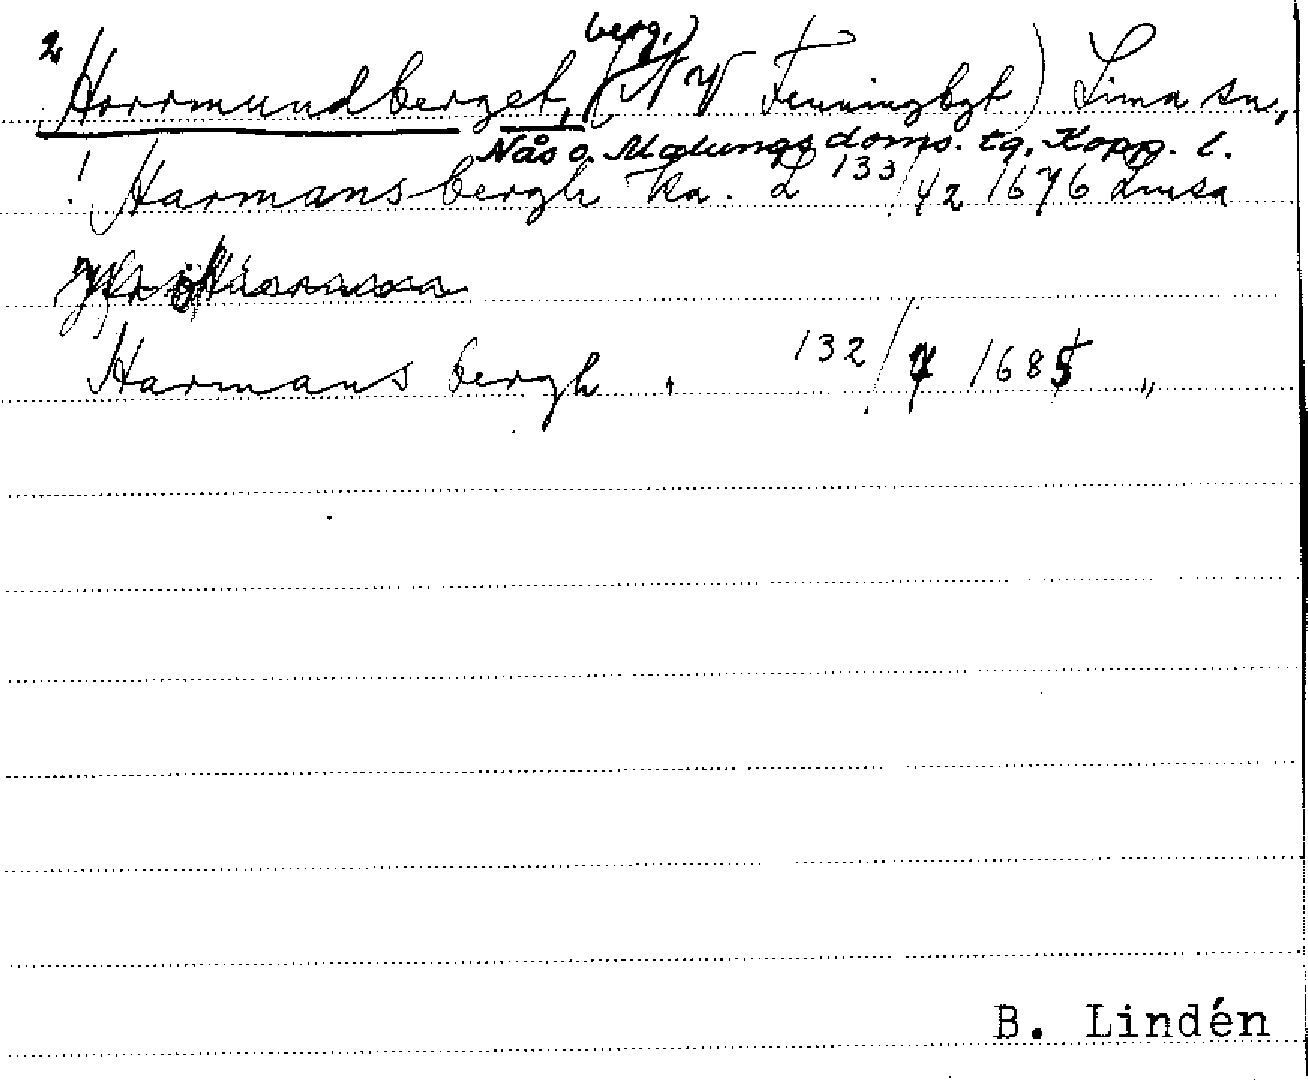 2 Horrmundberget, berg, (NV Fenningbgt) Lima sn,
Nås o. Malungs doms. tg, Kopp. l.
! Harmansbergh Ka. L 133/42 1676 Lima
Harmans bergh " 132/7 1685 "
B. Lindén